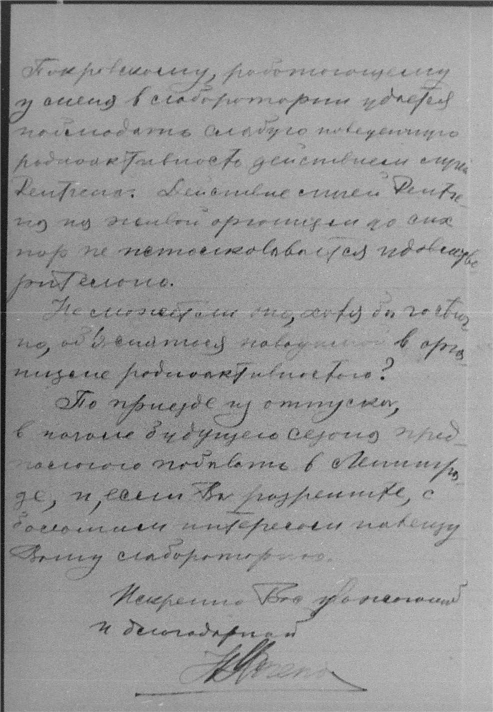 Покровскому, работающему
у меня в лаборатории удается
наблюдать слабую наведенную
радиоактивность действием луча
Рентгена. Действие лучей Рентге-
на на живой организм до сих
пор не истолковывается удовлетво-
рительно.
Не может ли она, хотя бы частич-
но, объясняться наводимой в орга-
низме радиоактивностью?
По приезде из отпуска,
в начале будущего сезона пред-
полагаю побывать в Ленингра-
де, и, если Вы разрешите, с
большим интересом навещу
Вашу лабораторию.
Искренно Вас уважающий
и благодарный